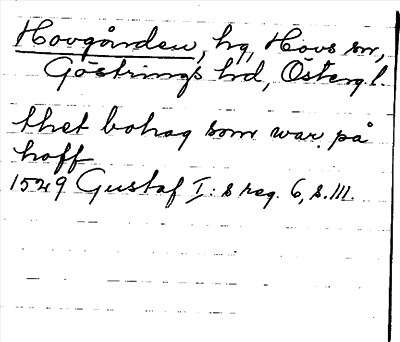 Hovgården, hg, Hovs sn,
Göstrings hd, Östergl.
thet bohag som war på
hoff
1529 Gustaf I:s reg. 6, s. 111.